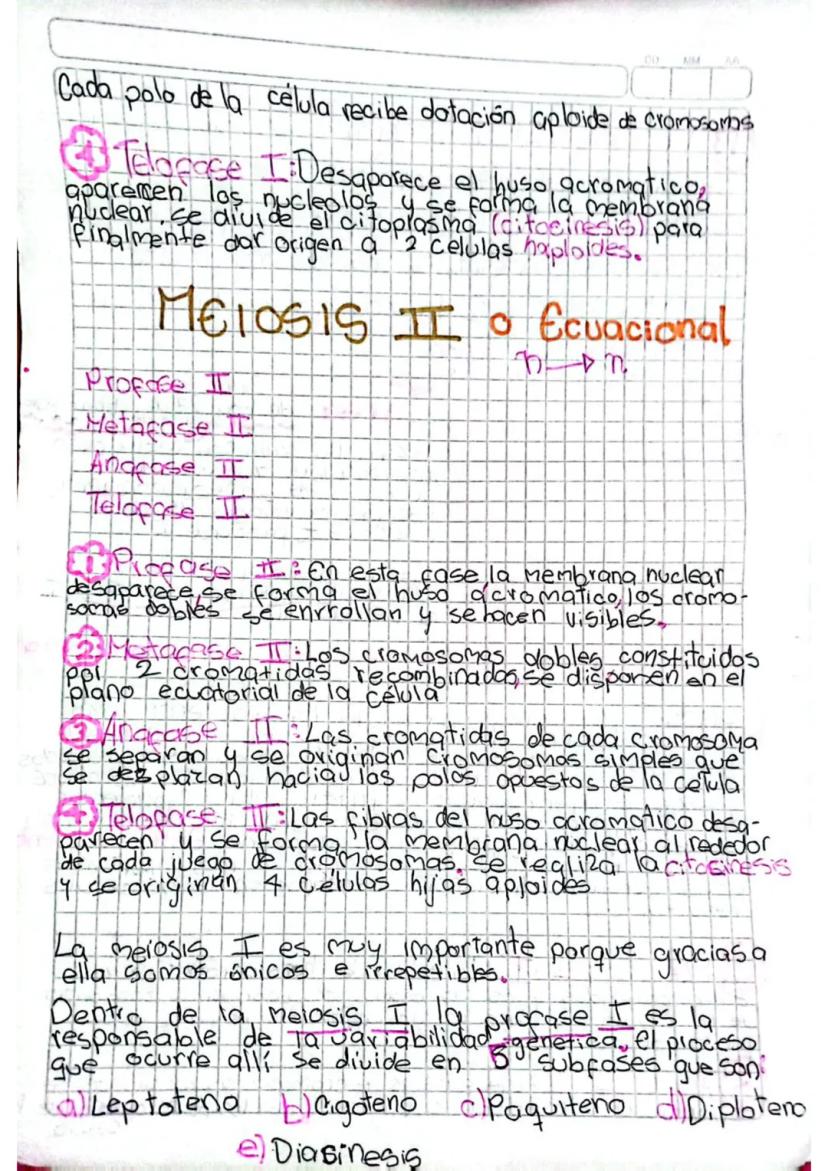 DD MM AA
Cada polo de la célula recibe dotación aploide de cromosomas
4 Telofase I: Desaparece el huso acromatico,
aparecen los nucleolos y se forma la membrana
nuclear. se divide el citoplasma (citocinesis) para
finalmente dar origen a 2 celulas haploides.
MEIOSIS II o Ecuacional
n → n
Profase II
Metafase II
Anafase II
Telofase II
1 Profase II: En esta fase, la membrana nuclear
desaparece, se forma el huso acromatico, los cromo-
somas dobles se enrrollan y se hacen visibles.
2 Metafase II: Los cromosomas dobles constituidos
por 2 cromatidas recombinadas, se disponen en el
plano ecuatorial de la célula
3 Anafase II: Las cromatidas de cada cromosoma
se separan y se originan cromosomas simples que
se desplazan hacia los polos opuestos de la célula
4 Telofase II: Las fibras del huso acromatico desa-
parecen y se forma la membrana nuclear al rededor
de cada juego de cromosomas. se realiza la citosinesis
y se originan 4 células hijas aploides
La meiosis I es muy importante porque gracias a
ella somos únicos e irrepetibles.
Dentro de la meiosis I la profase I es la
responsable de la variabilidad genética, el proceso
que ocurre allí se divide en 5 subfases que son:
a) Leptoteno b) Cigoteno c) Paquiteno d) Diploteno
e) Diasinesis